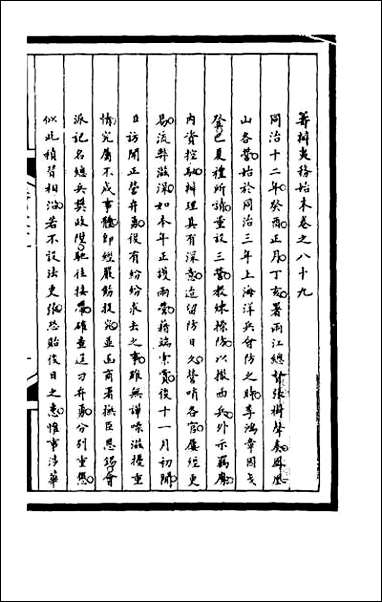 籌辦夷務始末卷之八十九
同治十二年癸酉正月丁亥署兩江總督張樹聲奏鳳凰
山各營始於同治三年上海洋兵會防之時李鴻章因戈
登巴夏禮所請董設三營教練操防以撤西兵外示羈縻
內資控馭辦理具有深意迨留防日久營哨各官屢經更
易流弊滋深如本年正課兩營藉端索賞後十一月初間
日訪聞正營弁勇復有紛紛求去之事雖無譁噪滋擾重
情究屬不成事體即經嚴飭提究並函商署撫臣恩錫會
派記名總兵樊政陞馳往接帶確查逆刃弁勇分別重懲
似此積習相沿若不設法更張恐貽後日之患惟事涉華